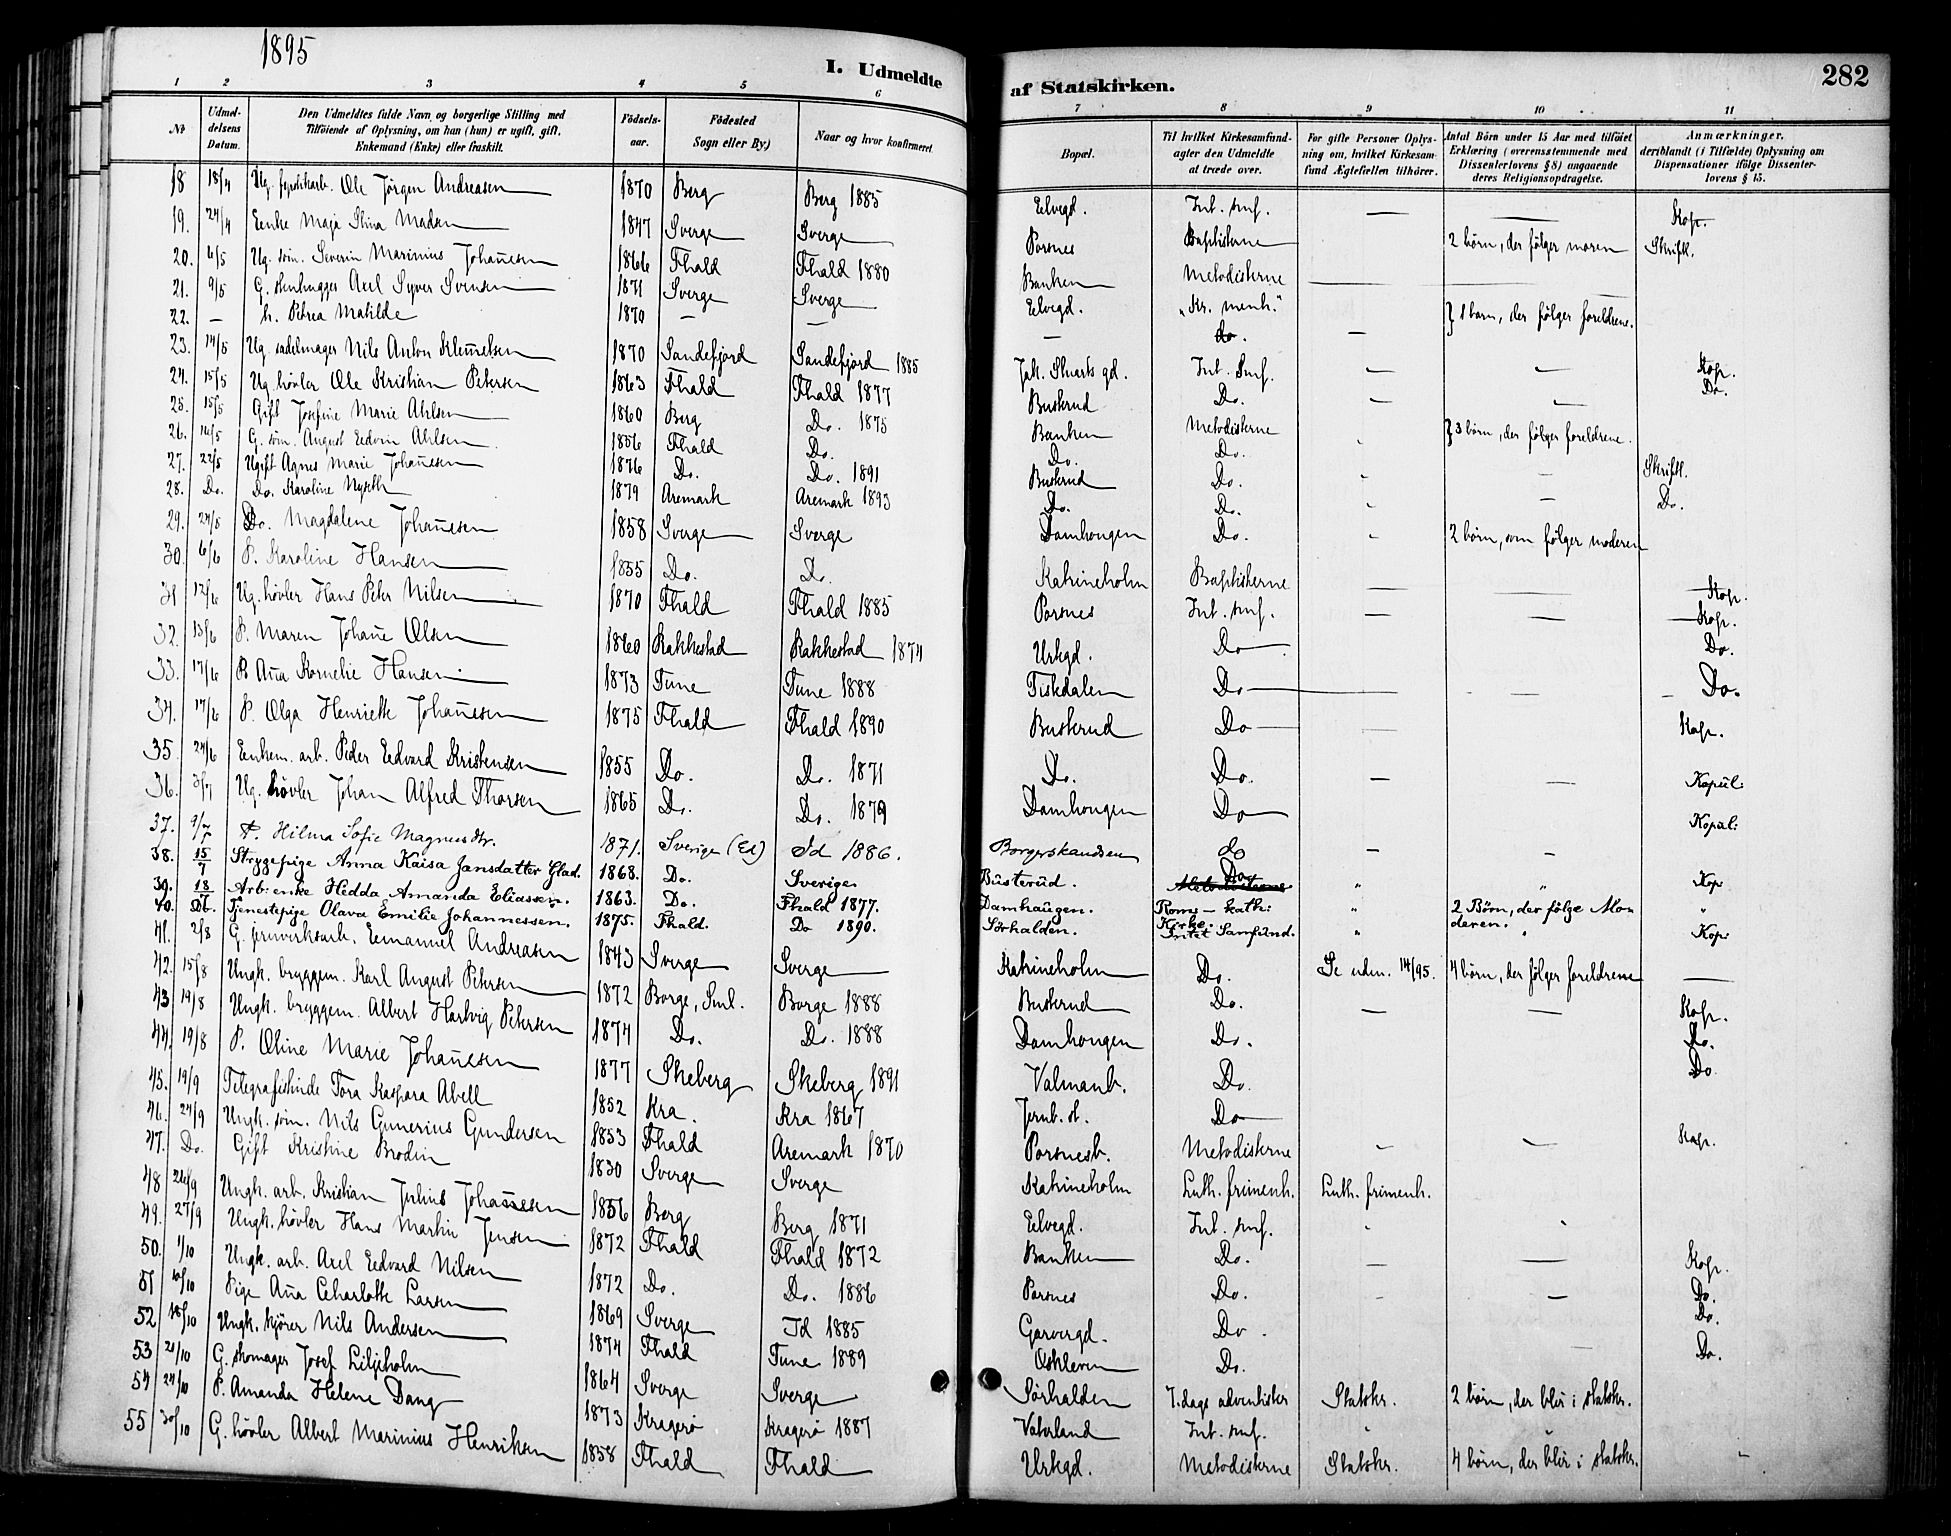 1895
I. Udmeldte af Statskirken.
282
1 2 3 4 5 6 7 8 9 10 11
No | Udmeldelsens Datum. | Den Udmeldtes fulde Navn og borgerlige Stilling med Tilföiende af Oplysning, om han (hun) er ugift, gift, Enkemand (Enke) eller fraskilt. | Födselsaar. | Födested Sogn eller By) | Naar og hvor konfirmeret | Bopæl. | Til hvilket Kirkesamfund agter den Udmeldte at træde over. | For gifte Personer Oplysning om, hvilket Kirkesamfund Ægtefællen tilhörer. | Antal Börn under 15 Aar med tilföiet Erklæring (overensstemmende med Dissenterlovens § 8) angaaende deres Religionsopdragelse. | Anmærkninger, deriblandt (i Tilfælde) Oplysning om Dispensationer ifölge Dissenterlovens § 15.
18 | 18/4 | Ug. Ole Jörgen Andreasen | 1870 | Berg | Berg 1885 | Elvegd. | Int. smf. | — | — | Kop.
19. | 24/4 | Enke Maja Stina Madsen | 1847 | Sverge | Sverge | Porsnes | Baptisterne | | 2 börn, der fölger moren | Skriftl.
20. | 6/5 | Ug. söm. Severin Marinius Johan̄esen | 1866 | Fhald | Fhald 1880 | Banken | Metodisterne | — | —
21. | 9/5 | G. stenhugger Axel Syver Svensen | 1871 | Sverge | Sverge | Elvegd. | "Kr. menh." | | } 1 barn, der fölger foreldrene.
22. | — | h. Petrea Matilde | 1870 | — | — | — | do. | —
23. | 14/5 | Ug. sadelmager Nils Anton Klemetsen | 1870 | Sandefjord | Sandefjord 1885 | Jak. Stuarts gd. | Int. Smf. | — | — | Kop.
24. | 15/5 | Ug. hövler Ole Kristian Petersen | 1863 | Fhald | Fhald 1877 | Buskrud | Do. | — | — | Do.
25. | 15/5 | Gift Josefine Marie Ahlsen | 1860 | Berg | Do. 1875 | Banken | Metodisterne | | } 3 börn, der fölger foreldrene.
26. | 14/5 | G. söm. August Edvin Ahlsen | 1856 | Fhald | Do. | Do. | Do.
27. | 22/5 | Ugift Agnes Marie Johan̄esen | 1876 | Do. | Do. 1891 | Buskrud | Do. | | — | Skriftl.
28. | Do. | Do. Karoline Nyseth | 1879 | Aremark | Aremark 1893 | Do. | Do. | | — | Do.
29. | 24/5 | Do. Magdalene Johan̄esen | 1858 | Sverge | Sverge | Damhougen | Do. | | 2 börn, som fölger moderen
30. | 6/6 | P. Karoline Hansen | 1855 | Do. | Do. | Katrineholm | Baptisterne | — | — | Kop.
31 | 12/6 | Ug. hövler Hans Peter Nilsen | 1870 | Fhald | Fhald 1885 | Porsnes | Int. smf. | — | — | Kop.
32. | 13/6 | P. Maren Johan̄e Olsen | 1860 | Rakkestad | Rakkestad 1874 | Urtegd. | Do | | | Do.
33. | 17/6 | P. An̄a Kornelie Hansen | 1873 | Tune | Tune 1888 | Tiskdalen | Do | — | — | Do.
34. | 17/6 | P. Olga Henriette Johan̄esen | 1875 | Fhald | Fhald 1890 | Buskrud | Do | — | | Kop.
35. | 24/6 | Enkem. arb. Peder Edvard Kristensen | 1855 | Do. | Do. 1871 | Do. | Do. | — | — | Kopul:
36. | 3/7 | Ug. hövler Johan Alfred Thorsen | 1865 | Do. | Do. 1879 | Damhougen | Do | | | Kopul:
37. | 9/7 | P. Hilma Sofie Magnusdtr. | 1871. | Sverige (Ed) | Id 1886. | Borgerskandsen | do | — | —
38. | 15/7 | Strygepige Anna Kaisa Jansdatter Glad. | 1868. | Do. | Sverige. | Busterud. | Metodisterne Do. | " | " | Kop
39. | 18/7 | Arb: enke Hedda Amanda Eliassen. | 1863. | Do. | Fhald 1877. | Damhaugen. | Rom. - kath: Kirke. | " | 2 Börn, der fölge Moderen. | "
40. | Do. | Tjenestepige Olava Emilie Johannessen. | 1875. | Fhald. | Do 1890. | Sörhalden. | Intet Samfund. | " | " | Kop.
41. | 2/8 | G. jernverksarb. Emanuel Andreasen | 1843 | Sverge | Sverge | Katrineholm | Do. | Se udm. 14/95. | 4 börn, der fölger foreldrene | —
42. | 15/8 | Ungk. bryggem. Karl August Petersen | 1872 | Borge, Sml. | Borge 1888 | Buskrud | Do. | — | — | Kop.
43 | 19/8 | Ungk. bryggem. Albert Hartvig Petersen | 1874 | Do. | Do. 1888 | Damhougen | Do. | | | Do.
44. | 19/8 | P. Oline Marie Johan̄esen | 1877 | Skeberg | Skeberg 1891 | Valmanb. | Do. | | | Do
45. | 19/9 | Telegrafistinde Tora Kaspara Abell | 1852 | Kra. | Kra 1867 | Jernb. st. | Do
46. | 24/9 | Ungk. söm. Nils Gunerius Gundersen | 1853 | Fhald | Aremark 1870 | Porsnesb. | Metodisterne | — | — | Kop.
47. | Do. | Gift Kristine Brodin | 1830 | Sverge | Sverge | Katrineholm | Luth. frimenh. | Luth. frimenh.
48 | 26/9 | Ungk. arb. Kristian Julius Johan̄esen | 1856 | Berg | Berg 1871 | Elvegd. | Int. smf.
49. | 27/9 | Ungk. hövler Hans Martin Jensen | 1872 | Fhald | Fhald 1872 | Banken | Do. | — | — | Kop.
50. | 1/10 | Ungk. arb. Axel Edvard Nilsen | 1872 | Do. | Do. 1886 | Porsnes | Do. | | — | Do.
51 | 10/10 | Pige An̄a Charlotte Larsen | 1869 | Sverge | Id 1885 | Garvergd. | Do. | | | Do.
52 | 18/10 | Ungk. kjörer Nils Andersen | 1874 | Fhald | Tune 1889 | Oskleven | Do. | | — | Do.
53 | 21/10 | G. skomager Josef Liljeholm | 1864 | Sverge | Sverge | Sörhalden | 7. dags adventister | Statskr. | 2 börn, der blir i statskr.
54 | 24/10 | P. Amanda Helene Dang | 1873 | Kragerö | Kragerö 1887 | Vaterland | Int. smf.
55 | 30/10 | G. hövler Albert Marinius Henriksen | 1858 | Fhald | Fhald | Urtegd. | Metodisterne | Statskr. | 4 börn, der blir i statskr.